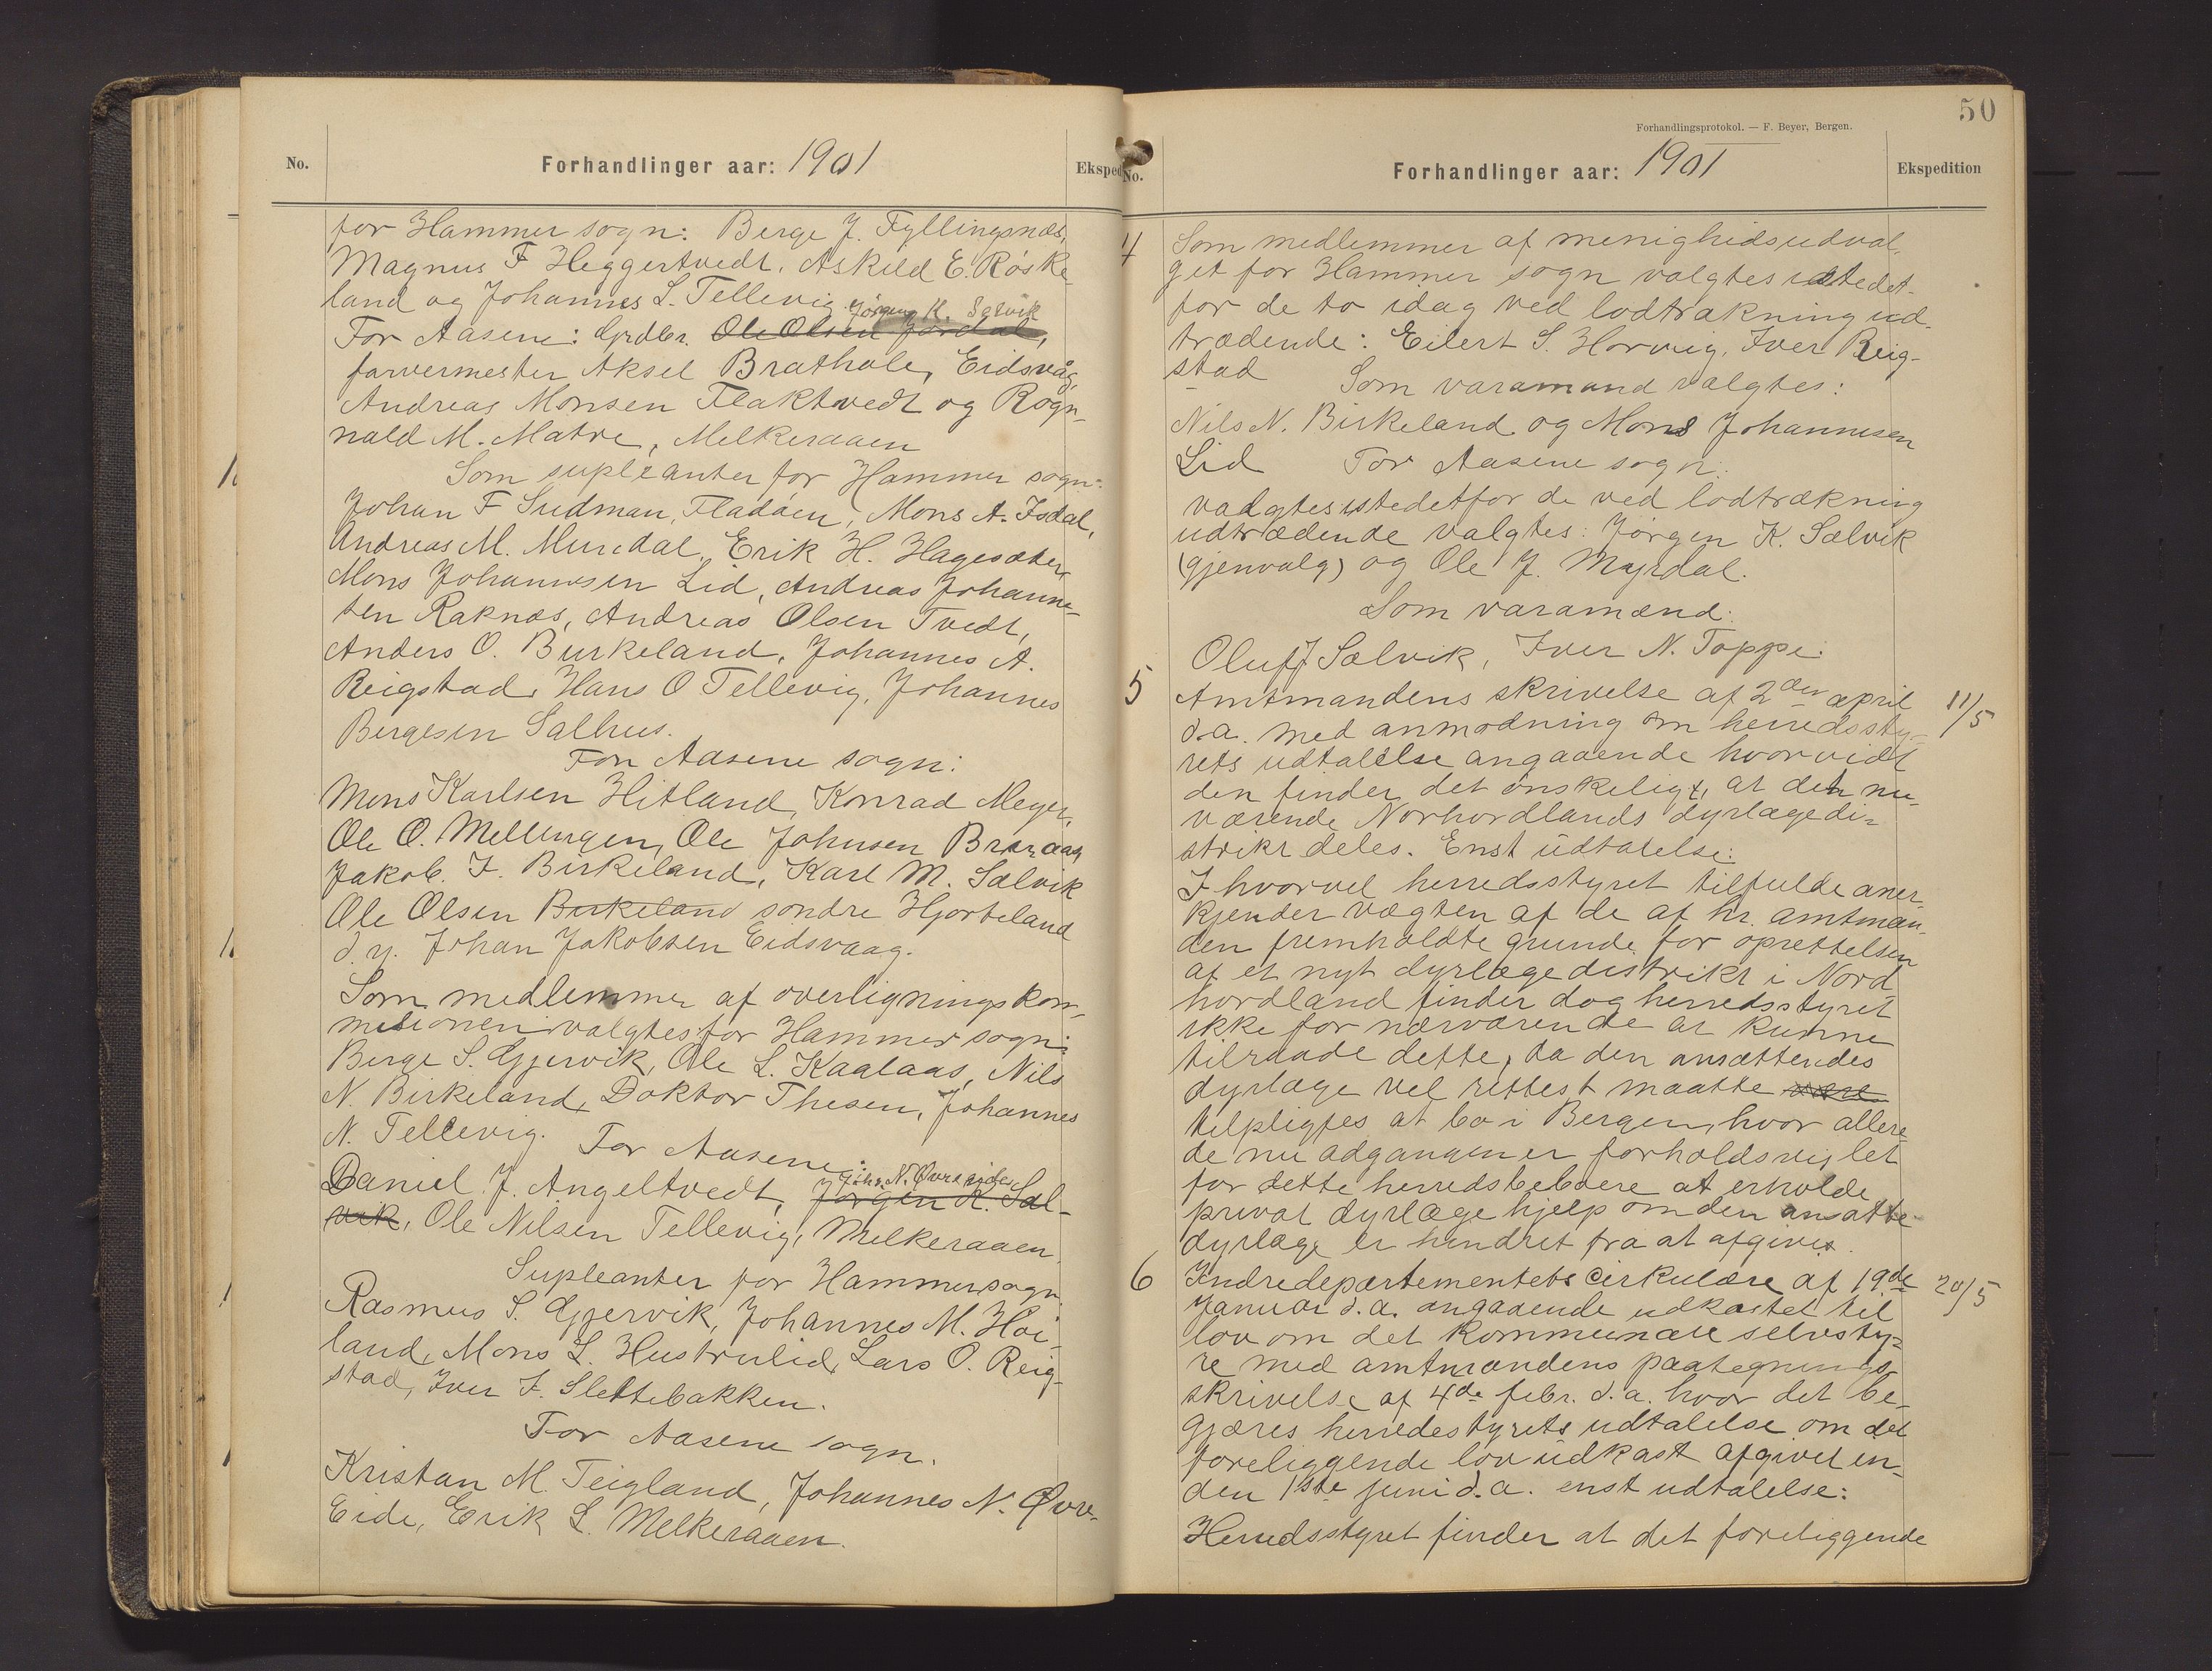 No.
Forhandlinger aar: 1901
Eksped
for Hammer sogn: Berge J. Fyllingsnæs,
Magnus F Heggertvedt, Askild E. Røske-
land og Johannes L. Tellevig.
Jørgen K. Sælvik
For Aasene: Grdbr. Ole Olsen Jordal,
farvermester Aksel Brathole, Eidsvåg,
Andreas Monsen Flaktvedt og Rogn-
nald M. Matre, Melkeraaen
Som supleanter for Hammer sogn:
Johan F Sudman, Fladøen, Mons A. Isdal,
Andreas M. Muredal, Erik H. Hagesæter,
Mons Johannesen Lid, Andreas Johanne-
sen Raknæs, Andreas Olsen Tvedt,
Anders O. Burkeland, Johannes A.
Reigstad, Hans O Tellevig, Johannes
Bergesen Salhus.
For Aasene sogn:
Mons Karlsen Hitland, Konrad Meyer,
Ole O. Mellingen, Ole Johnsen Bruraas
Jakob. J. Birkeland, Karl M. Sælvik
Ole Olsen Birkeland søndre Hjorteland
d. y. Johan Jakobsen Eidsvaag.
Som medlemmer af overligningskom-
misionen valgtes for Hammer sogn:
Berge S. Gjervik, Ole L. Kaalaas, Nils
N. Birkeland, Doktor Thesen, Johannes
N. Tellevig. For Aasene:
Johs. N. Øvre eide
Daniel J. Angeltvedt, Jørgen K. Sæl-
vik, Ole Nilsen Tellevig, Melkeraaen
Supleanter for Hammer sogn:
Rasmus S. Gjervik, Johannes M. Høi-
land, Mons L. Hustrulid, Lars O. Reig-
stad, Iver J. Slettebakken.
For Aasene sogn.
Kristan M. Teigland, Johannes N. Øvre-
Eide, Erik L. Melkeraaen.
50
Forhandlingsprotokol. — F. Beyer, Bergen.
No.
Forhandlinger aar: 1901
Ekspedition
4 Som medlemmer af menighedsudval-
get for Hammer sogn valgtes istedet-
for de to idag ved lodtrækning ud-
trædende: Eilert S. Horvig, Iver Reig-
stad Som varamænd valgtes:
Nils N. Birkeland og Mons Johannesen
Lid For Aasene sogn:
valgtes istedetfor de ved lodtrækning
udtrædende valgtes: Jørgen K. Sælvik
(gjenvalg) og Ole J. Myrdal.
Som varamænd:
Oluf J Sælvik, Iver N. Toppe:
5 Amtmandens skrivelse af 2den april 11/5
d.a. med anmodning om herredssty-
rets udtalelse angaaende hvorvidt
den finder det ønskeligt, at den nu-
værende Norhordlands dyrlægedi-
strikt deles. Enst udtalelse:
I hvorvel herredsstyret tilfulde aner-
kjender vægten af de af hr. amtman-
den fremholdte grunde for oprettelsen
af et nyt dyrlægedistrikt i Nord
hordland finder dog herredsstyret
ikke for nærværende at kunne
tilraade dette, da den ansættendes
dyrlæge vel rettest maatte være
tilpligtes at bo i Bergen, hvor allere-
de nu adgangen er forholdsvis let
for dette herredsbeboere at erholde
privat dyrlæge hjelp om den ansatte
dyrlæge er hindret fra at afgives.
6 Indredepartementets cirkulære af 19de 20/5
Januar d.a. angaaende udkastet til
lov om det kommunale selvsty-
re med amtmandens paategnings-
skrivelse af 4de febr. d.a. hvor det be-
gjæres herredestyrets udtalelse om det
foreliggende lovudkast afgivet in-
den 1ste juni d.a. enst udtalelse:
Herredsstyret finder at det foreliggende